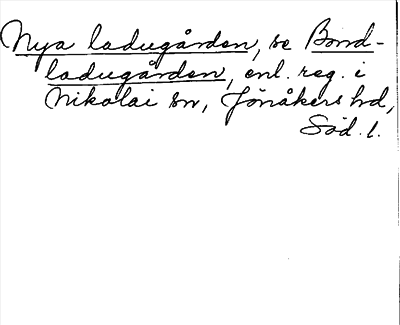 Nya ladugården, se Bond-
ladugården, enl. reg. i
Nikolai sn, Jönåkers hd,
Söd. l.